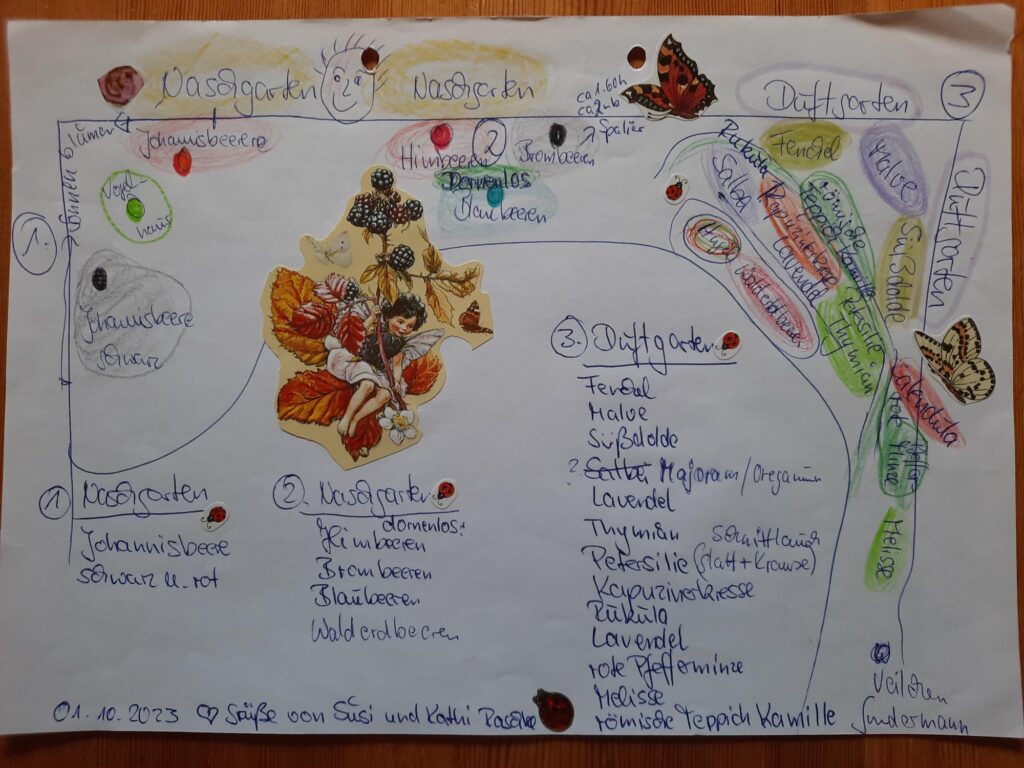 Naschgarten
Naschgarten
ca 1.60h
Duftgarten
3
Johannisbeere
Himbeeren
2
Brombeeren
Spalier
Dornenlos
Blaubeeren
Vogel-
haus
1.
Johannisbeere
schwarz
Rukula
Fenchel
Malve
Salbei
Kapuzinerkresse
römische
Teppich Kamille
Lavendel
Petersilie
Thymian
Süßdolde
Duftgarten
Walderdbeere
Calendula
rote
Minze
Melisse
3. Duftgarten
Fenchel
Malve
Süßdolde
? Salbei Majoram/Oreganum
Lavendel
Thymian Schnittlauch
Petersilie (glatt + Krause)
Kapuzinerkresse
Rukula
Lavendel
rote Pfefferminze
Melisse
römische Teppich Kamille
1 Naschgarten
Johannisbeere
schwarz u. rot
2. Naschgarten
dornenlos!
Himbeeren
Brombeeren
Blaubeeren
Walderdbeeren
Veilchen
Sundermann
01.10.2023 ♡ Grüße von Susi und Kathi